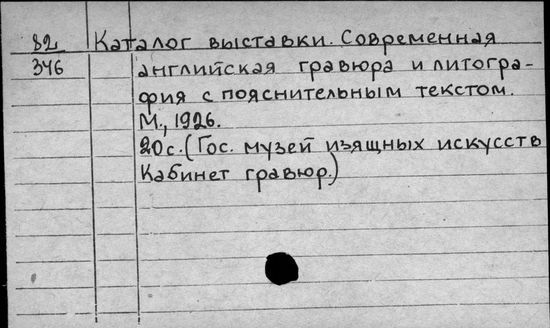 82 Каталог выставки. Современная
346 английская гравюра и литогра-
фия с пояснительным текстом.
М., 1926.
20с. (Гос. музей изящных искусств
Кабинет гравюр.)